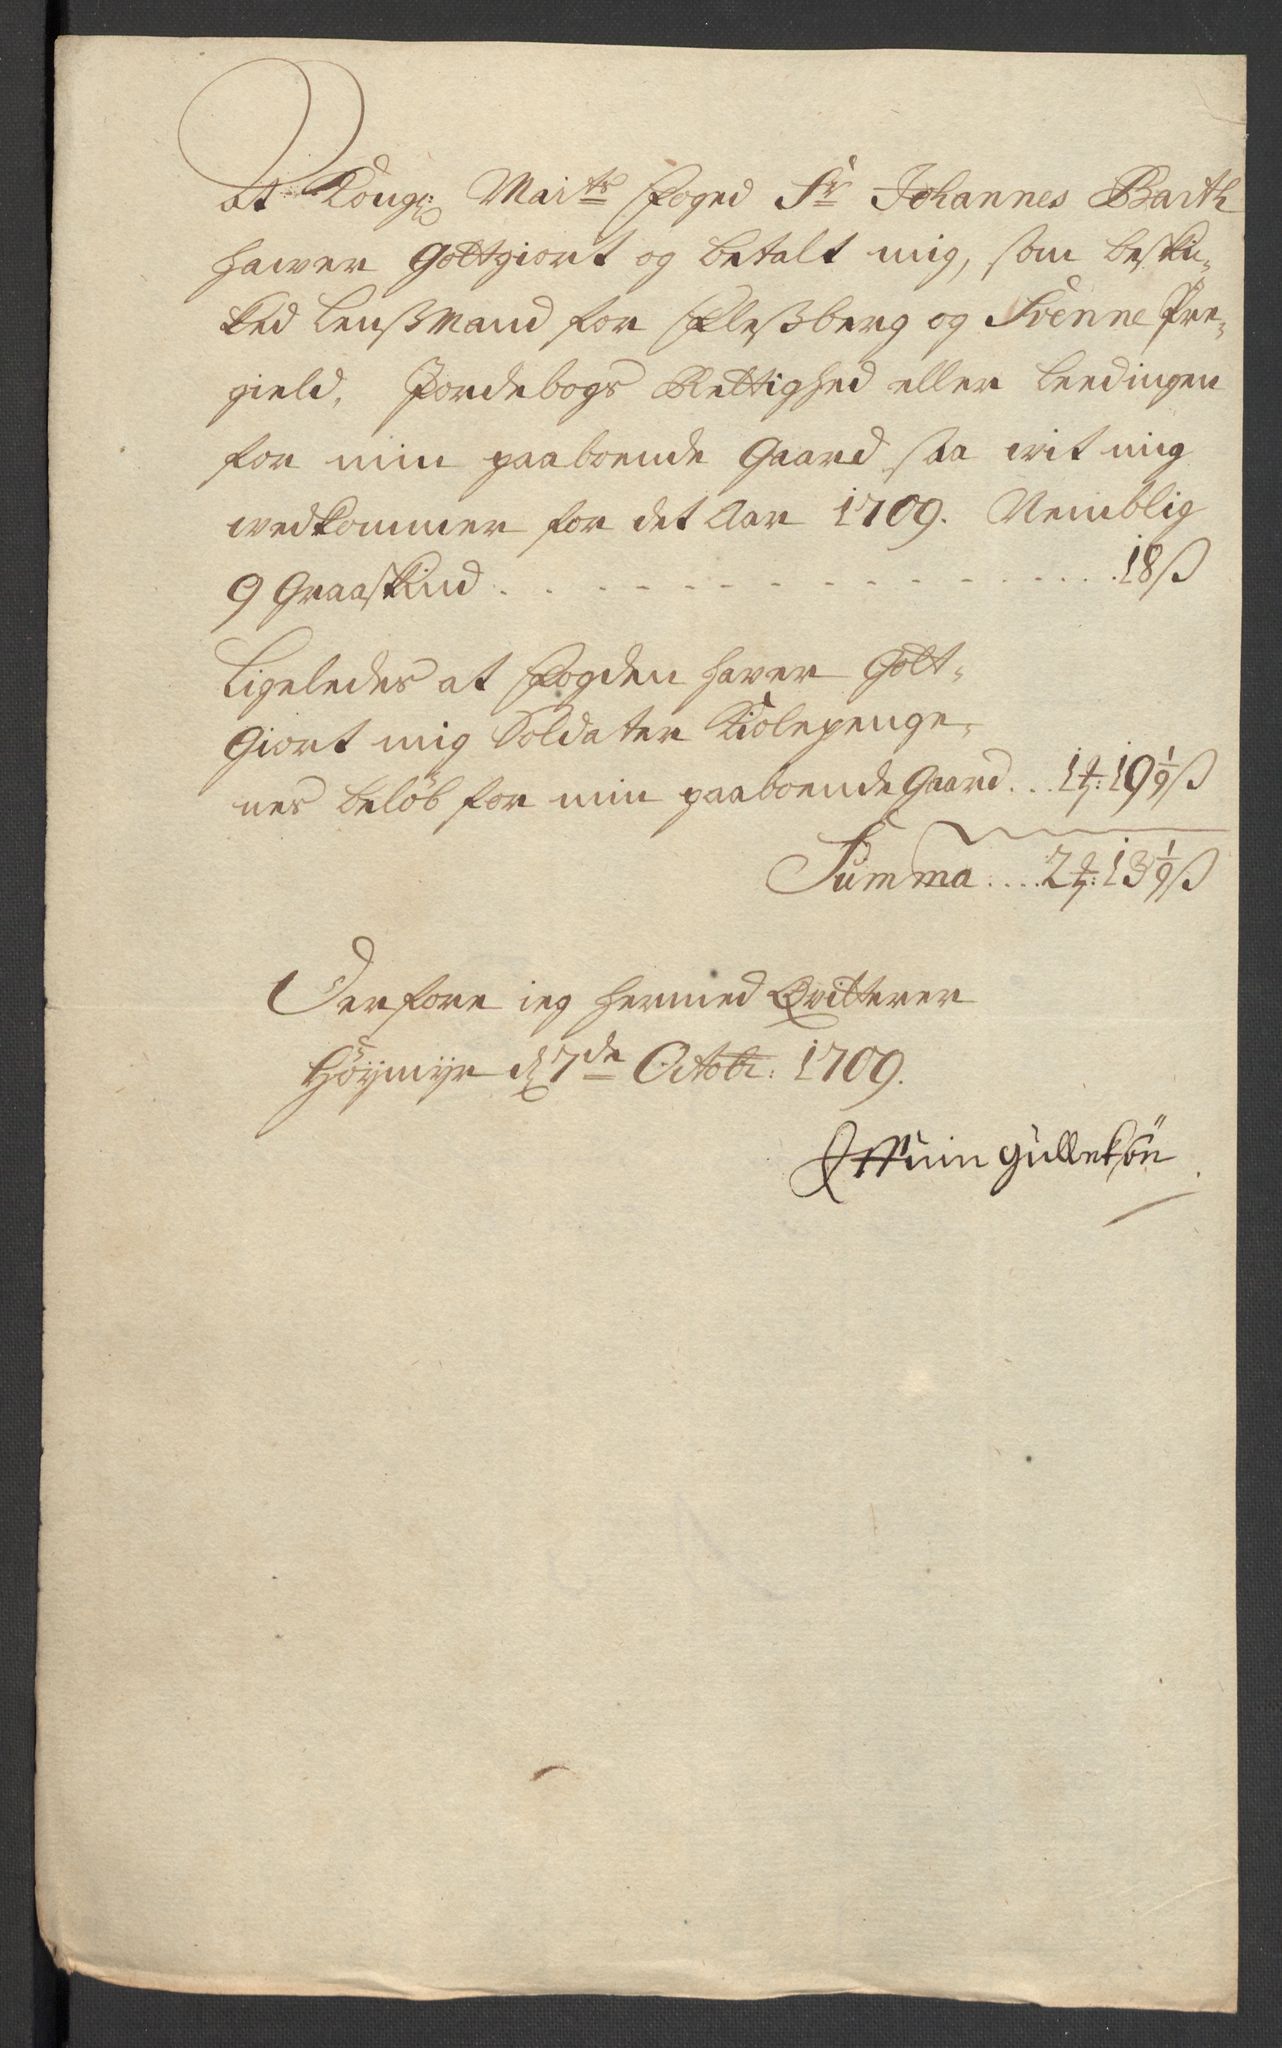 At Kongl: Maits Foged Sr Johannes Barth
hawer Gottgiort og betalt mig, som beski-
ked Lenßmand for Fleßberg og Svenne Pre-
gield, Jordebogs Rettighed eller Leedingen
for min paaboende Gaard saa wit mig
wedkommer for det Aar 1709. Nemblig
9 Graaskind . . . . . . . . . . . . . . . . . 18 ß
Ligeledes at Fogden haver Gott-
Giort mig Soldater Kiolepenge-
nes beløb for min paaboende Gaard . . . 1 #: 19 1/9 ß
Summa . . . . 2 #: 13 1/9 ß
Derfore ieg hermed Qvitterer
Høymyr d 7de Octobr: 1709.
Gulleksøn